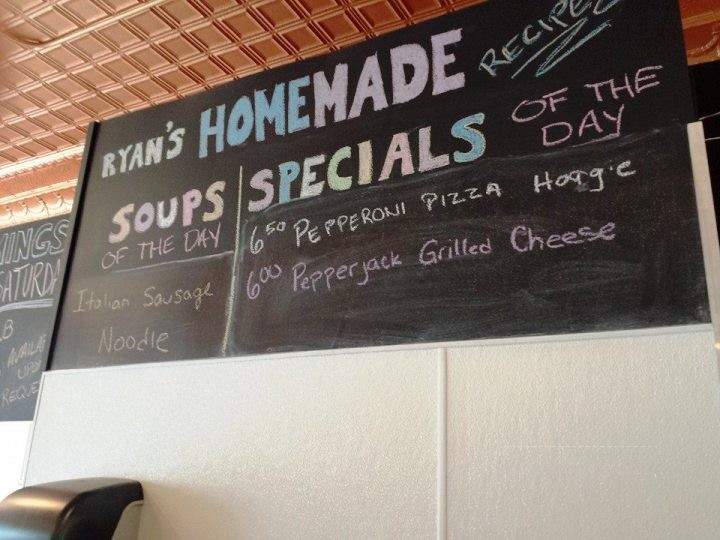 RYAN'S HOMEMADE RECIPE
SOUPS
OF THE DAY
Italian Sausage
Noodle
SPECIALS OF THE DAY
6 50 PEPPERONI PIZZA Hoagie
6 00 Pepperjack Grilled Cheese
INGS
B